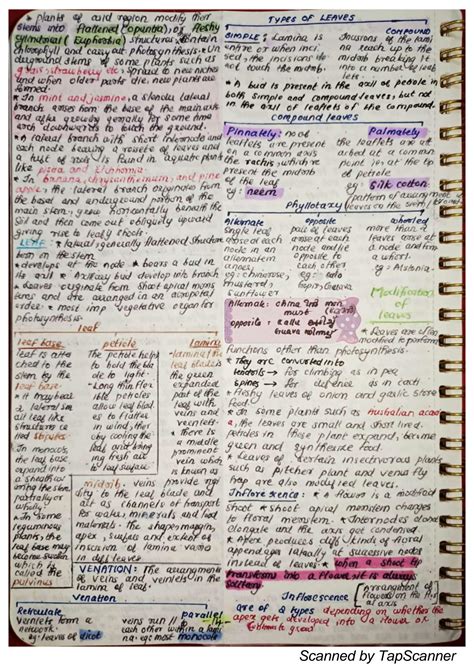 * plants of arid region modify their
stems into flattened (opuntia) or fleshy
cylindrical (Euphorbia) structures, contain
chlorophyll and carry out photosynthesis. * Un
derground stems of some plants such as
grass, strawberry etc spread to new niches
and when older parts die new plants are
formed.
* In mint and jasmine, a slender lateral
branch arises from the base of the main axis
and after growing aerially for some time
arch downwards to touch the ground.
* A lateral branch with short internodes and
each node bearing a rosette of leaves and
a tuft of roots is found in aquatic plants
like pistia and Eichhornia.
* In banana, chrysanthemum, and pine
apple, the lateral branches originates from
the basal and underground portion of the
main stem, grow horizontally beneath the
soil and then come out obliquely upward
giving rise to leafy shoot.
LEAF: * lateral, generally flattened structure
born on the stem.
* develops at the node * bears a bud in
its axil * Axillary bud develop into branch
* Leaves originate from shoot apical meris
tems and are arranged in an acropetal
order * most imp vegetative organ for
photosynthesis.
leaf
leaf base petiole lamina
leaf is atta
ched to the
stem by the
leaf base
* It may bear
a lateral sm
all leaf like
structures ca
lled stipules
* In monocots
the leaf base
expand into
a sheath co
vering the stem
partially or
wholly.
* In some
leguminous
plants, the
leaf base may
become swollen
which is
called the
pulvinus
The petiole helps
to hold the bla
de to light.
* Long thin flex
ible petioles
allow leaf blad
es to flutter
in wind, ther
eby cooling the
leaf and bring
ing fresh air
to leaf surface
* lamina / the
leaf blade is
the green
expanded
part of the
leaf with
veins and
veinlets.
* there is
a middle
prominent
vein which
is known as
midrib. * veins provide rigi
dity to the leaf blade and
act as channels of transport
for water, minerals and food
materials. * The shape, margin,
apex, surface and extent of
incision of lamina varies
in diff leaves
VENATION: The arrangements
of veins and veinlets in the
lamina of leaf.
Venation
Reticulate parallel
veinlets form a
network.
eg: leaves of dicot
veins run || to
each other within a lamina
eg: most monocots
TYPES OF LEAVES
SIMPLE: Lamina is
entire or when inci
sed, the incisions do
not touch the midrib.
COMPOUND
Incisions of the lami
na reach up to the
midrib breaking it
into a number of leaf
lets.
* A bud is present in the axil of petiole in
both simple and compound leaves, but not
in the axil of leaflets of the compound.
Compound leaves
Pinnately: no of
leaflets are present
on a common axis,
the rachis, which re
present the midrib
of the leaf
eg: neem
Palmately
the leaflets are att
ached at a common
point, i.e, at the tip
of petiole
eg: silk cotton
Phyllotaxy (pattern of arrangement of
leaves on the stem)
Alternate
Single leaf
arises at each
node in an
alternate m
anner,
eg: chinarose,
mustard,
sunflower
opposite
pair of leaves
arise at each
node and lie
opposite to
each other
whorled
more than two
leaves arise at
a node and form
a whorl.
eg: Alstonia.
Modification
of
leaves
* Leaves are often
modified to perform
functions other than photosynthesis.
* They are converted into
tendrils → For climbing as in pea
spines → For defence as in cacti
* Fleshy leaves of onion and garlic store
food.
* In some plants such as Australian acac
ia, the leaves are small and short lived.
petioles in these plant expand, become
green and synthesise food
* Leaves of certain insectivorous plants
such as pitcher plant and venus fly
trap are also modified leaves.
Inflorescence: * A flower is a modified
shoot * shoot apical meristem changes
to floral meristem. * Internodes do not
elongate and the axis get condensed
* Apex produces diff kinds of floral
appendages laterally at successive nodes
instead of leaves. * when a shoot tip
transforms into a flower, it is always
solitary
Inflorescence (arrangement of
flowers on the flor
al axis)
are of 2 types depending on whether the
apex gets developed into a flower or
continue to grow
Scanned by TapScanner